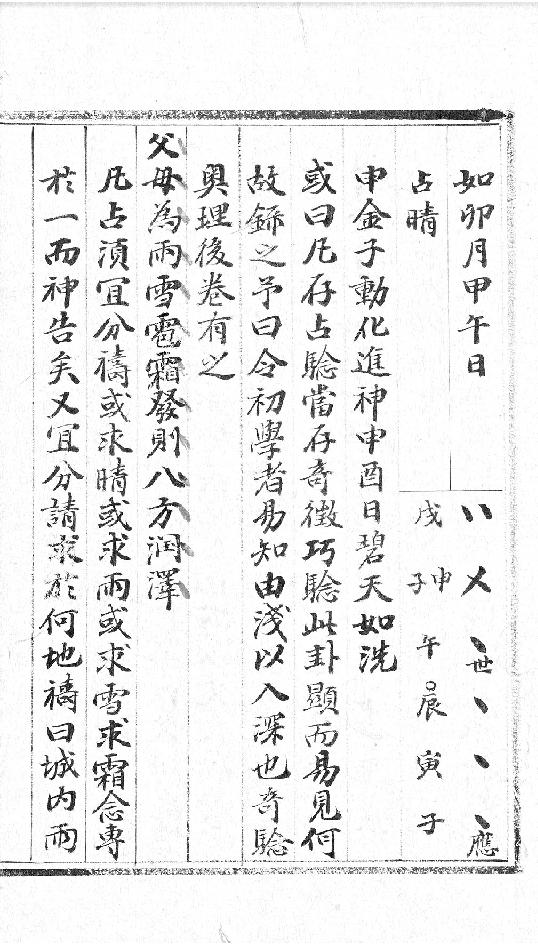 如卯月甲午日 世 應
占晴 戌 申 子 午 辰 寅 子
申金子動化進神申酉日碧天如洗
或曰凡存占驗當存奇徵巧驗此卦顯而易見何
故錄之予曰令初學者易知由淺以入深也奇驗
奧理後卷有之
父母為雨雪雹霜發則八方润澤
凡占湏宜分禱或求晴或求雨或求雪求霜念專
於一而神告矣又宜分請求於何地禱曰城内雨